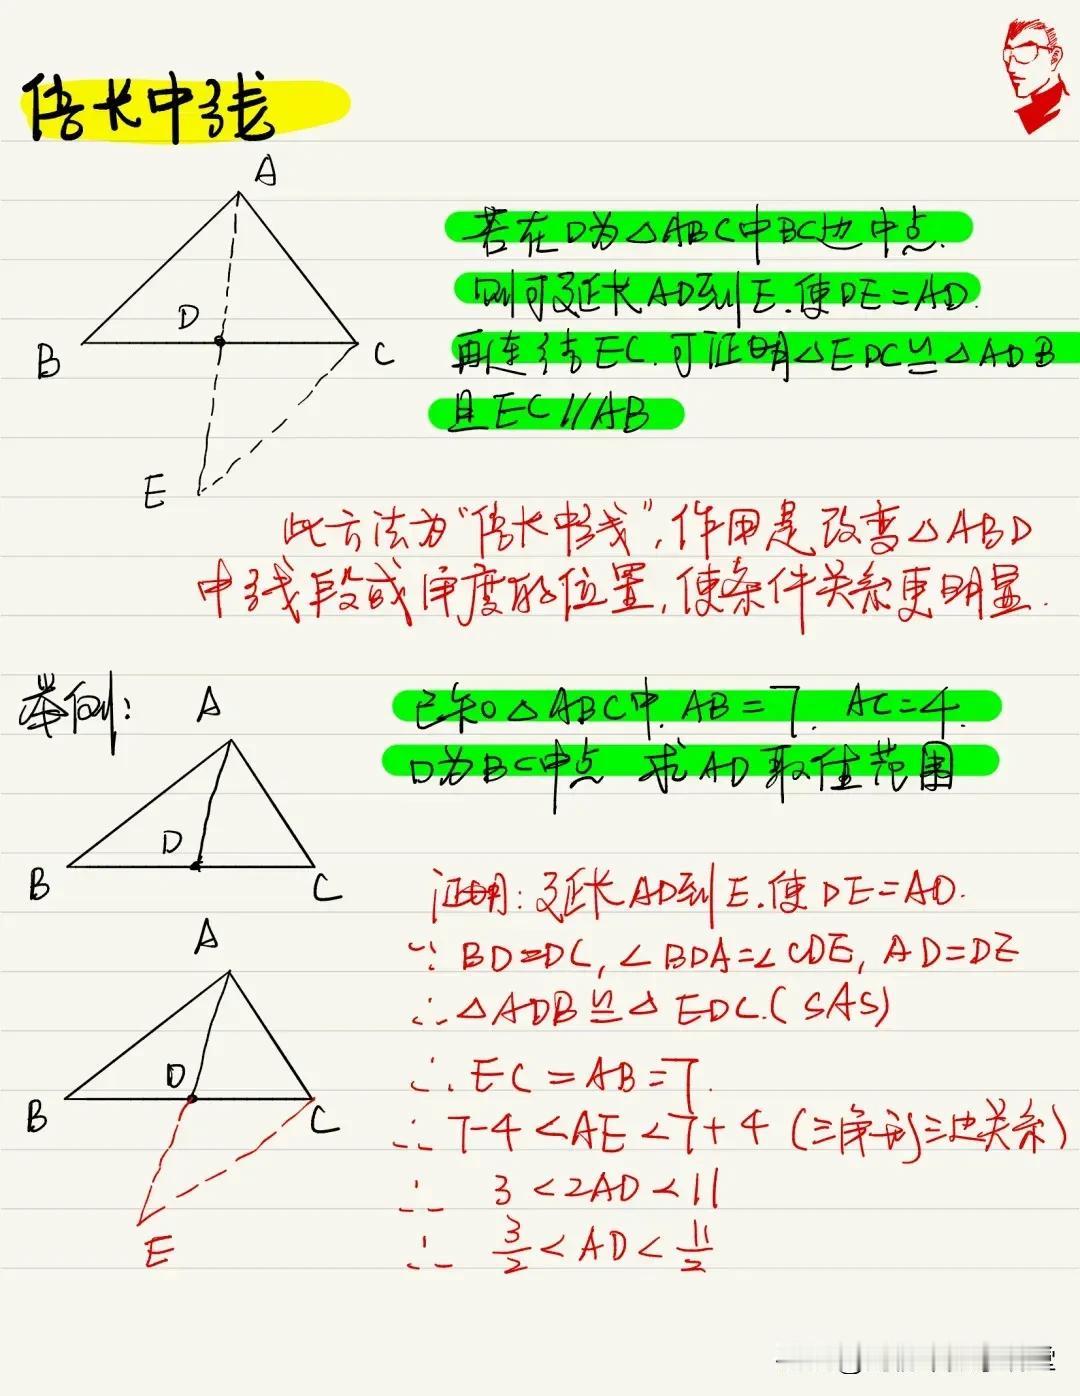 倍长中线
A
D
B
C
E
若在D为△ABC中BC边中点.
则可延长AD到E.使DE=AD.
再连结EC.可证明△EDC≌△ADB
且EC∥AB
此方法为“倍长中线”,作用是改变△ABD
中线段或角度的位置,使条件关系更明显.
举例:
A
D
B
C
已知△ABC中.AB=7. AC=4.
D为BC中点 求AD取值范围
A
D
B
C
E
证明:延长AD到E.使DE=AD.
∵ BD=DC,∠BDA=∠CDE, AD=DE
∴△ADB≌△EDC.(SAS)
∴ EC=AB=7.
∴ 7-4<AE<7+4 (三角形三边关系)
∴ 3<2AD<11
∴ 3/2<AD<11/2